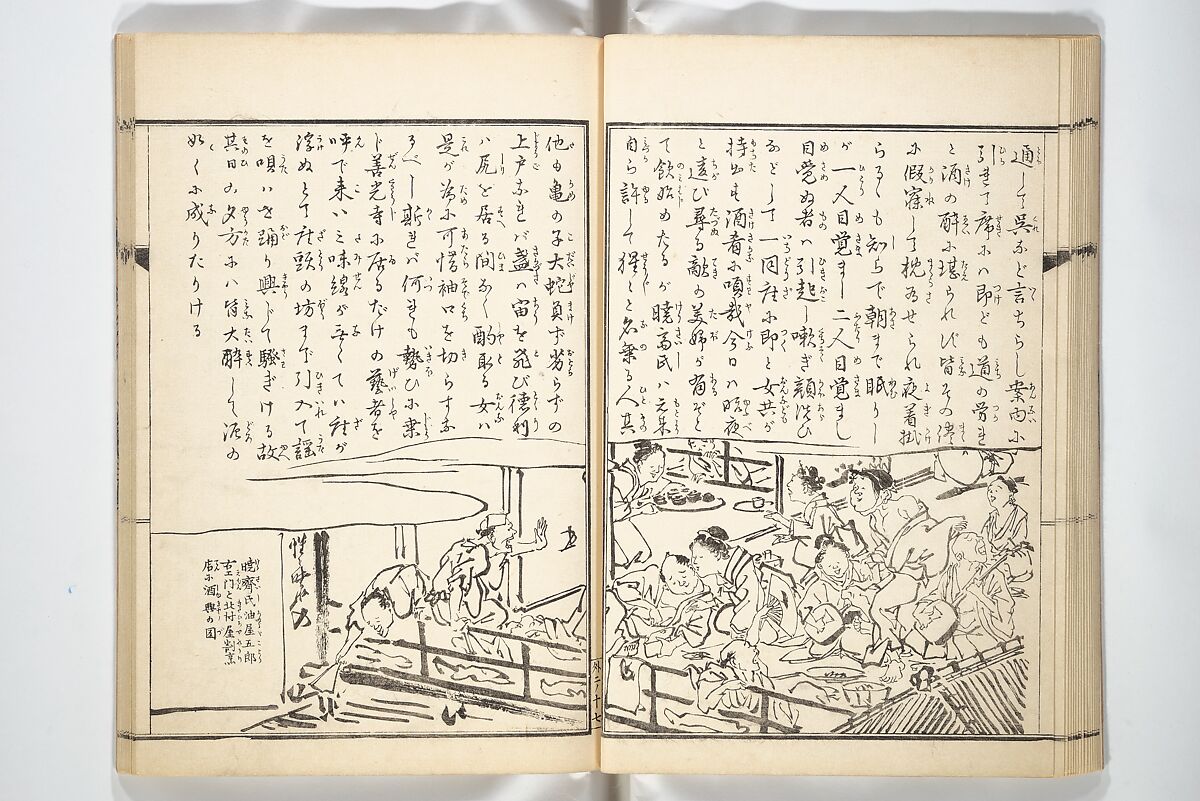 通して呉など言ちらし案内に
引せて席には即ども道の労れ
と酒の酔に堪られず皆その儘
に假寐して枕為せられ夜着掛
らるゝも知らで朝まで眠りし
が一人目覚まし二人目覚まし
目覚ぬ者は引起し嗽ぎ顔洗ひ
などして一同座に即と女共が
持出す酒肴に項哉今日は暗夜
と違ひ尋る敵の美婦が有ぞと
て飲始めたるが暁斎氏は元来
自ら許して猩々と名乗る人其
他も亀の子大蛇負ず劣らずの
上戸なれば盞は宙を飛び徳利
は尻を居る間なく酌取る女は
是が為に可惜袖口を切らすな
るべし斯れば何れも勢ひに乗
じ善光寺に居るだけの藝者を
呼で来い三味線が無くてい座が
浮ぬとて座頭の坊まで引入て謡
を唄いを踊り興じて騒ぎける故
其日の夕方には皆大酔して泥の
如くに成りたりける
暁齋氏油屋五郎
右エ門と北村屋割烹
店に酒興の図
外二ノ十七